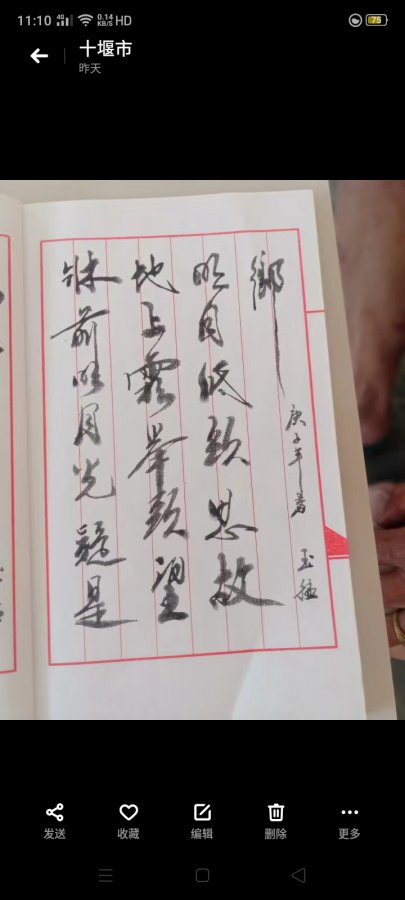 11:10 4G 0.14 KB/S HD 75
十堰市
昨天
牀前明月光疑是
地上霜举頭望
明月低頭思故
鄉
庚子年
玉
发送 收藏 编辑 删除 更多